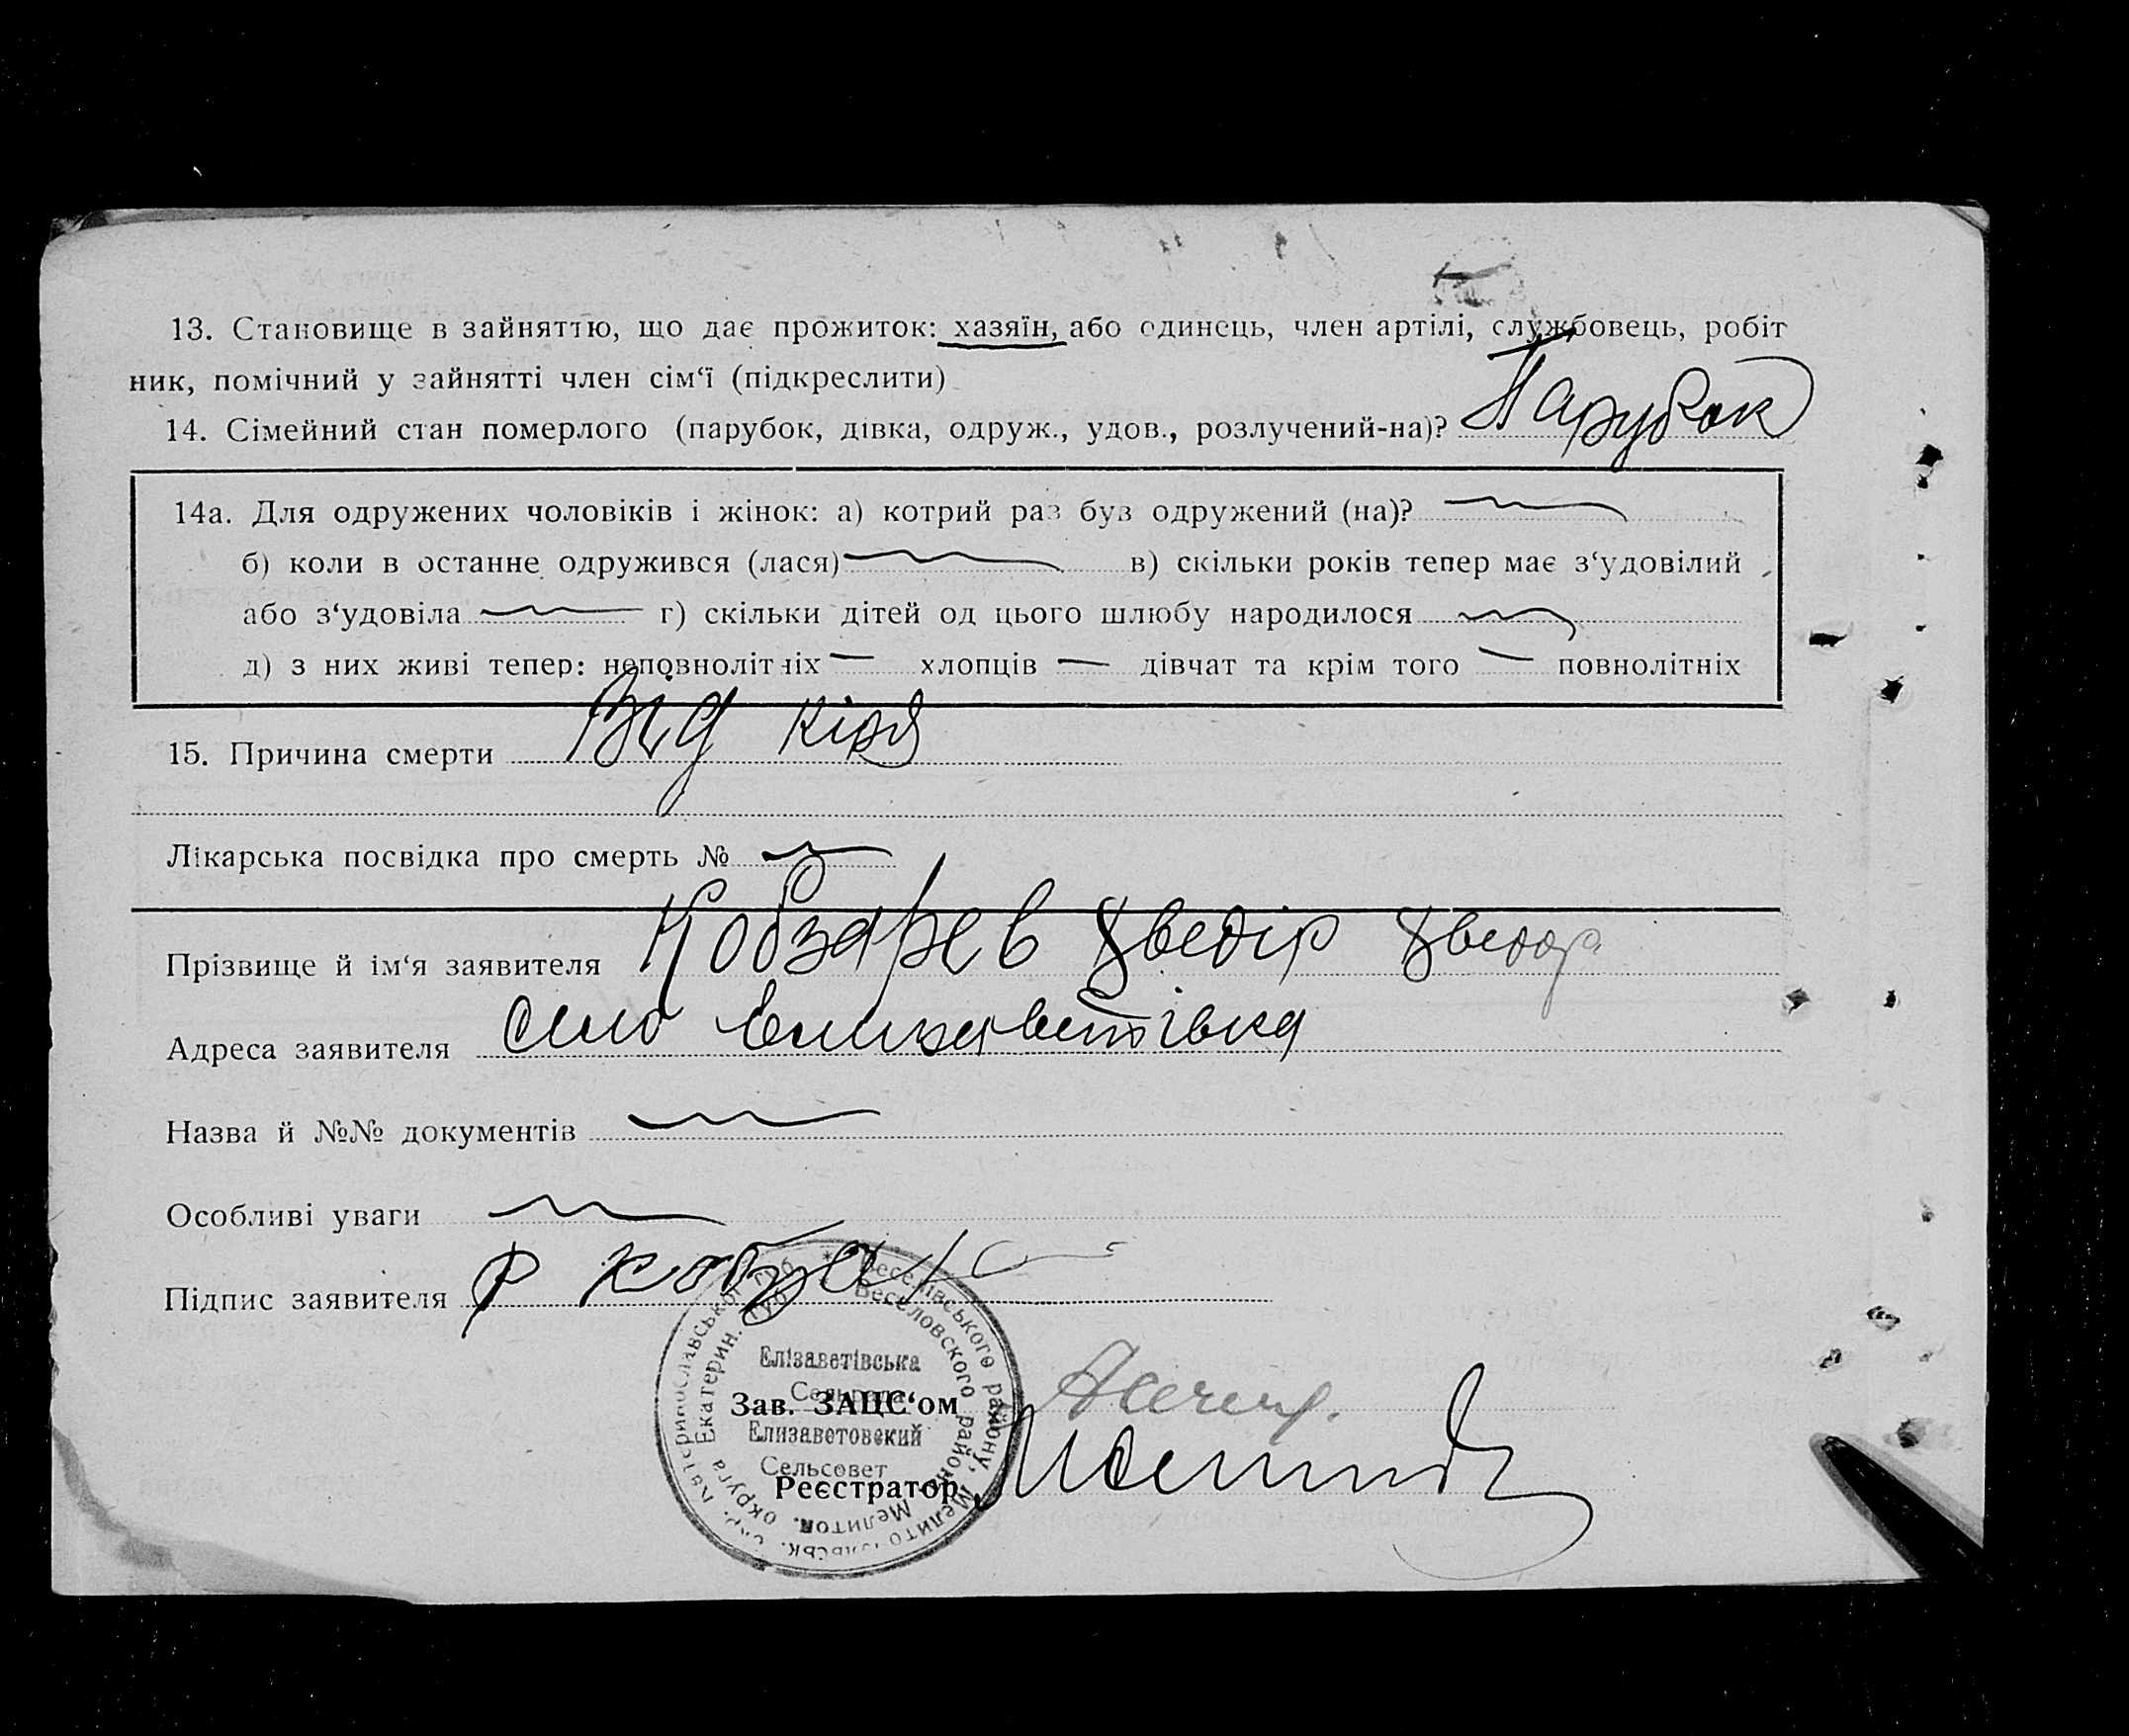 13. Становище в зайняттю, що дає прожиток: хазяїн, або одинець, член артілі, службовець, робіт
ник, помічний у зайнятті член сім‘ї (підкреслити)
14. Сімейний стан померлого (парубок, дівка, одруж., удов., розлучений-на)? Парубок
14а. Для одружених чоловіків і жінок: а) котрий раз був одружений (на)?
б) коли в останнє одружився (лася) в) скільки років тепер має з‘удовілий
або з‘удовіла г) скільки дітей од цього шлюбу народилося
д) з них живі тепер: неповнолітніх — хлопців — дівчат та крім того — повнолітніх
15. Причина смерти Від кіря
Лікарська посвідка про смерть №
Прізвище й ім‘я заявителя Кобзарев Хведір Хведор.
Адреса заявителя село Елизаветівка
Назва й №№ документів
Особливі уваги
Підпис заявителя
Елізаветівська
Сельрада
Зав. ЗАЦС‘ом
Елизаветовский
Сельсовет
Реєстратор
Веселівського району, Мелитопільськ. окр. Катеринославської губ.
Веселовского района Мелитоп. округа Екатерин. губ.